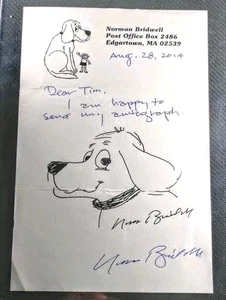 Norman Bridwell
Post Office Box 2486
Edgartown, MA 02539
Aug. 28, 2014
Dear Tim,
I am happy to
send my autograph
Norman Bridwell
Norman Bridwell